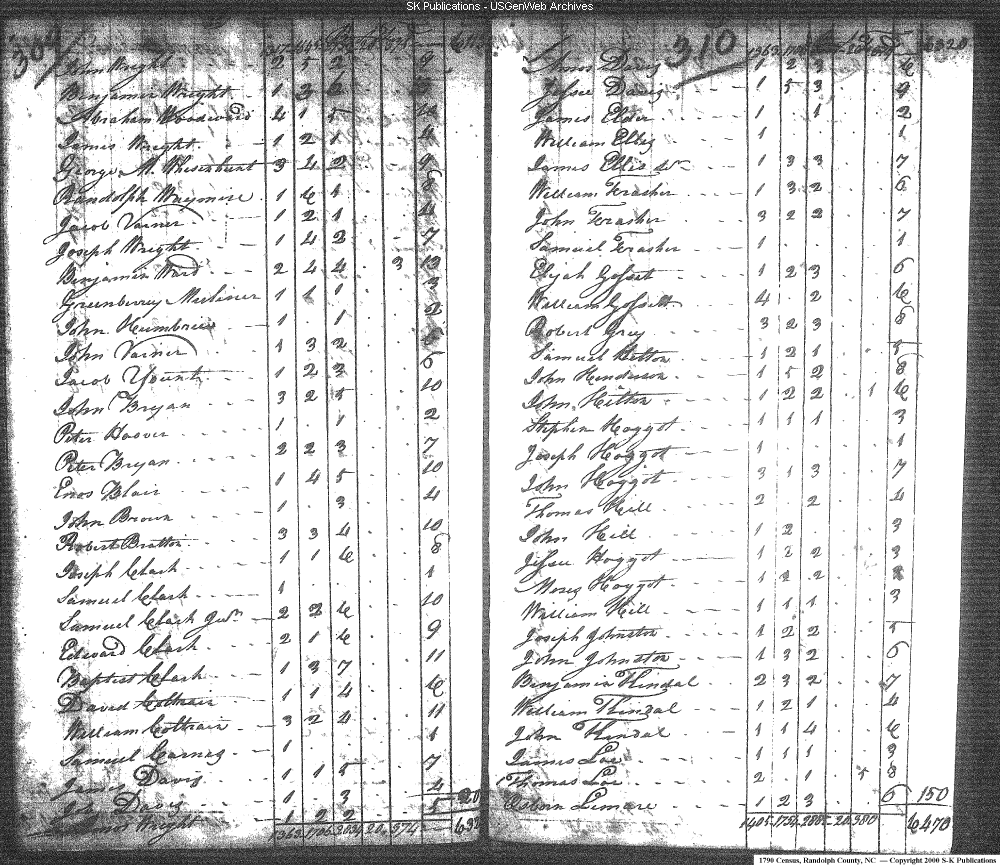 SK Publications - USGenWeb Archives
309
John Wright 2 5 2 9
Benjamin Wright 1 3 6
Abraham Woodward 4 1 5 10
James Wright 1 2 1 4
George M. Whesenhunt 3 4 2 9
Randolph Waymire 1 6 1 8
Jacob Varner 1 2 1 4
Joseph Wright 1 4 2 7
Benjamin Ward 2 4 4 3 13
Greenberrey 1 1 1 3
John 1 1 2
John Varner 1 3 2 6
Jacob Yount 1 2 3 6
John Bryan 3 2 5 10
Peter Hoover 1 1 2
Peter Bryan 2 2 3 7
Enos Blair 1 4 5 10
John Brown 1 3 4
Robert Bratton 3 3 4 10
Joseph Clark 1 1 6 8
Samuel Clark 1 1
Samuel Clark Junr 2 2 6 10
Edward Clark 2 1 6 9
Baptist Clark 1 3 7 11
David Coltrain 1 1 4 6
William Coltrain 3 2 4 11
Samuel Carney 1 1
James Davis 1 1 5 7
Davis 1 3 4
Wright 1 2 2 5
310
6320
Amos Davis 1 2 3 6
Jessee Davis 1 5 3 9
James Elder 1 1 2
William Elley 1 1
James Ellis Sr 1 3 3 7
William Frasher 1 3 2 6
John Frasher 3 2 2 7
Samuel Frasher 1 1
Elijah Gossett 1 2 3 6
William Gossett 4 2 6
Robert Grey 3 2 3 8
Samuel Helton 1 2 1 5
John Henderson 1 5 2 8
John Hilton 1 2 2 1 6
Stephen Hoggot 1 1 1 3
Joseph Hoggot 1 1
John Hoggot 3 1 3 7
Thomas Hill 2 2 4
John Hill 1 2 3
Jessee Hoggot 1 2 2
Moses Hoggot 1 2 2
William Hill 1 1 1 3
Joseph Johnston 1 2 2 5
John Johnston 1 3 2 6
Benjamin Kindal 2 3 2 7
William Kindal 1 2 1 4
John Kindal 1 1 4 6
James Low 1 1 1 3
Thomas Low 2 1 5 8
Osborn Limare 1 2 3 6 150
6470
1790 Census, Randolph County, NC — Copyright 2000 S-K Publications